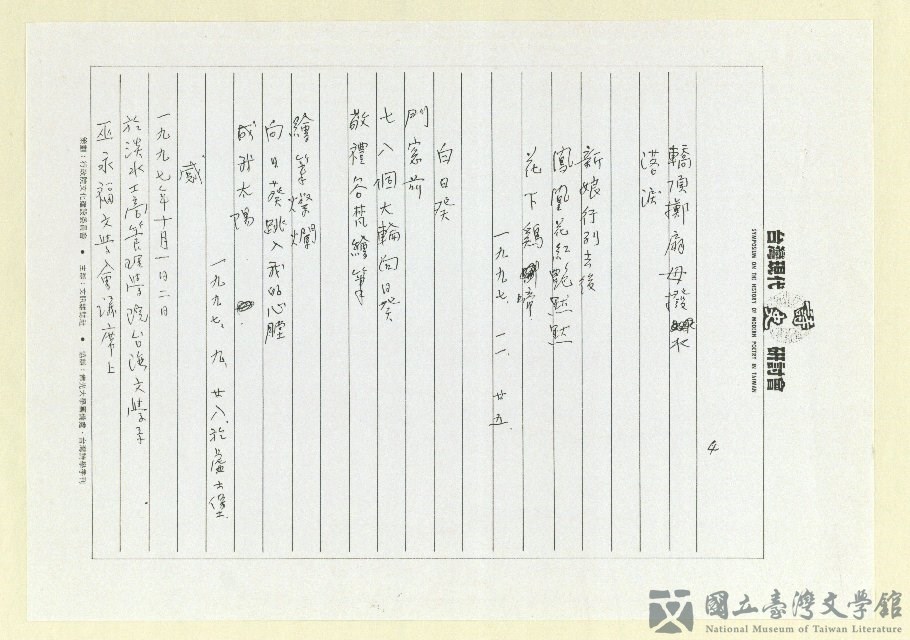 台灣現代詩史研討會
SYMPOSIUM ON THE HISTORY OF MODERN POETRY IN TAIWAN
4
轎頂擲扇母撥水
落淚
新娘行列去後
鳳凰花紅艷默默
花下鷄啼
一九九七、一一、廿五、
向日葵
門窓前
七八個大輪向日葵
敬禮各梵繪筆
繪筆燦爛
向日葵跳入我的心膛
成我太陽
一九九七、九、廿八於
感
一九九七年十月一日二日
於淡水工商管理學院台灣文學系
巫永福文學會議席上
策劃：行政院文化建設委員會 ● 主辦：文訊雜誌社 ●
國立臺灣文學館
National Museum of Taiwan Literature